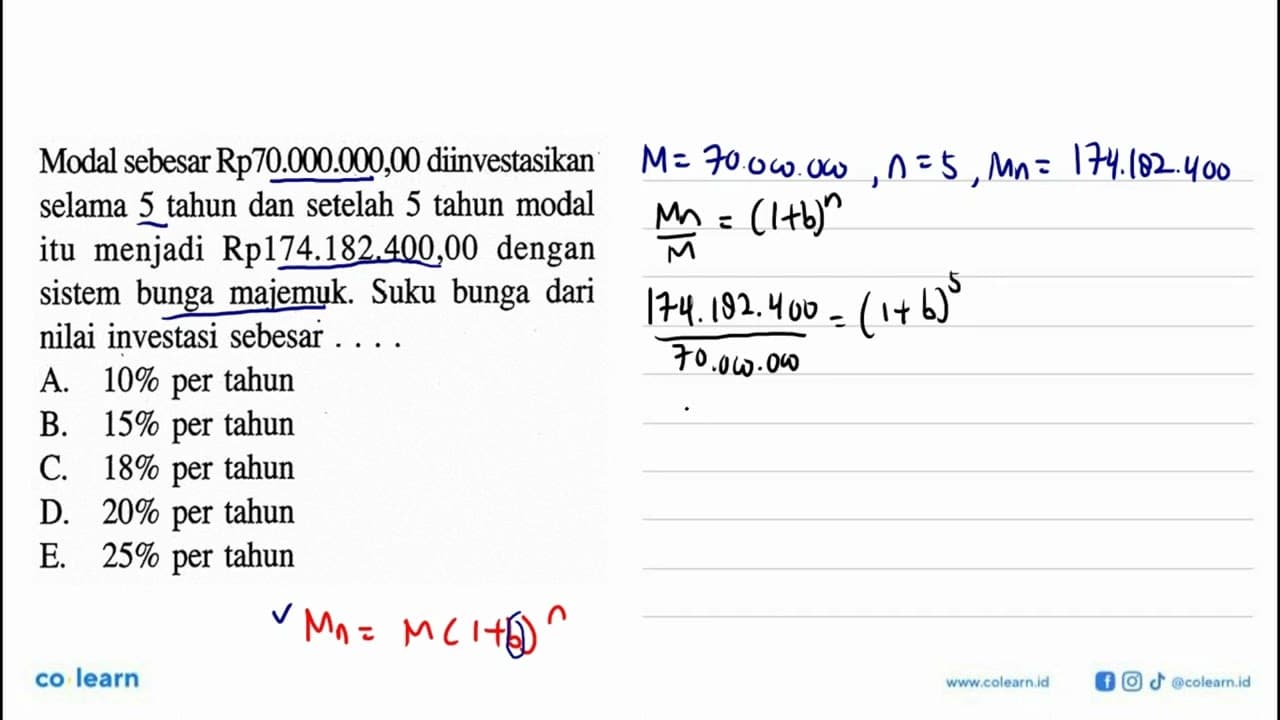 Modal sebesar Rp70.000.000,00 diinvestasikan
selama 5 tahun dan setelah 5 tahun modal
itu menjadi Rp174.182.400,00 dengan
sistem bunga majemuk. Suku bunga dari
nilai investasi sebesar . . . .
A. 10% per tahun
B. 15% per tahun
C. 18% per tahun
D. 20% per tahun
E. 25% per tahun
✓ Mn = M(1+b)^n
M = 70.000.000 , n = 5 , Mn = 174.182.400
Mn/M = (1+b)^n
174.182.400/70.000.000 = (1+b)^5
co learn
www.colearn.id
@colearn.id